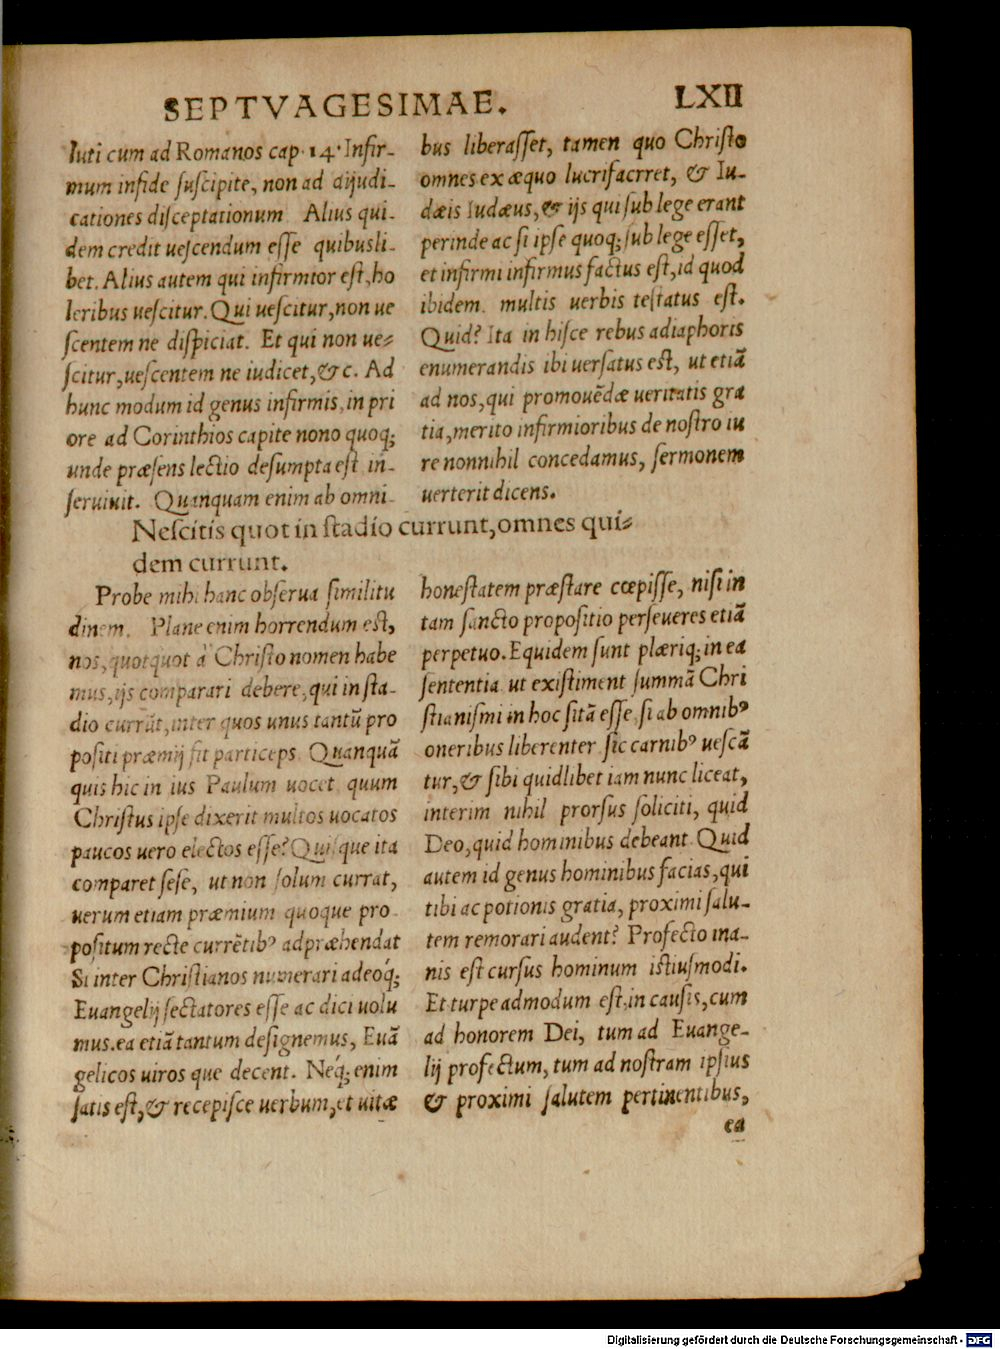 SEPTVAGESIMAE.
LXII
luti cum ad Romanos cap. 14. Infir-
mum in fide suscipite, non ad dijudi-
cationes disceptationum Alius qui-
dem credit uescendum esse quibusli-
bet. Alius autem qui infirmior est, ho
leribus uescitur. Qui uescitur, non ue
scentem ne dispiciat. Et qui non ue-
scitur, uescentem ne iudicet, & c. Ad
hunc modum id genus infirmis, in pri
ore ad Corinthios capite nono quoq;
unde præsens lectio desumpta est in-
seruiuit. Quanquam enim ab omni-
bus liberasset, tamen quo Christo
omnes ex æquo lucrifacrret, & Iu-
dæis Iudæus, & ijs qui sub lege erant
perinde ac si ipse quoq; sub lege esset,
et infirmi infirmus factus est, id quod
ibidem multis uerbis testatus est.
Quid? Ita in hisce rebus adiaphoris
enumerandis ibi uersatus est, ut etiã
ad nos, qui promouẽdæ ueritatis gra
tia, merito infirmioribus de nostro iu
re nonnihil concedamus, sermonem
uerterit dicens.
Nescitis quot in stadio currunt, omnes qui-
dem currunt.
Probe mihi hanc obserua similitu
dinem. Plane enim horrendum est,
nos, quotquot à Christo nomen habe
mus, ijs comparari debere, qui in sta-
dio currũt, inter quos unus tantũ pro
positi præmij fit particeps. Quanquã
quis hic in ius Paulum uocet quum
Christus ipse dixerit multos uocatos
paucos uero electos esse? Quisque ita
comparet sese, ut non solum currat,
uerum etiam præmium quoque pro
positum recte currẽtibꝰ adpræhendat
Si inter Christianos numerari adeoq́;
Euangelij sectatores esse ac dici uolu
mus. ea etiã tantum designemus, Euã
gelicos uiros que decent. Neq́; enim
satis est, & recepisce uerbum, et uitæ
honestatem præstare cœpisse, nisi in
tam sancto propositio perseueres etiã
perpetuo. Equidem sunt plæriq; in ea
sententia ut existiment summã Chri
stianismi in hoc sitã esse, si ab omnibꝰ
oneribus liberenter sic carnibꝰ uescã
tur, & sibi quidlibet iam nunc liceat,
interim nihil prorsus soliciti, quid
Deo, quid hominibus debeant. Quid
autem id genus hominibus facias, qui
tibi ac potionis gratia, proximi salu-
tem remorari audent? Profecto ina-
nis est cursus hominum istiusmodi.
Et turpe admodum est, in causis, cum
ad honorem Dei, tum ad Euange-
lij profectum, tum ad nostram ipsius
& proximi salutem pertinentibus,
ea
Digitalisierung gefördert durch die Deutsche Forschungsgemeinschaft - DFG